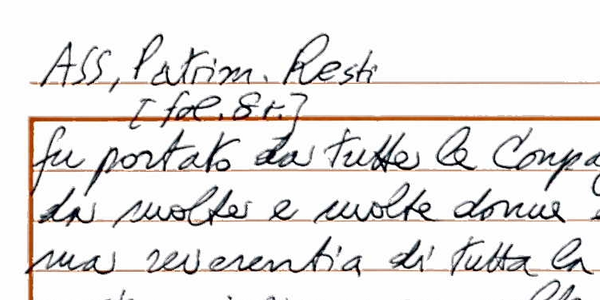 Ass, Patrim. Resti
[fol. 8r.]
fu portato da tutte le Compa
da molte e molte donne e
ma reverentia di tutta la